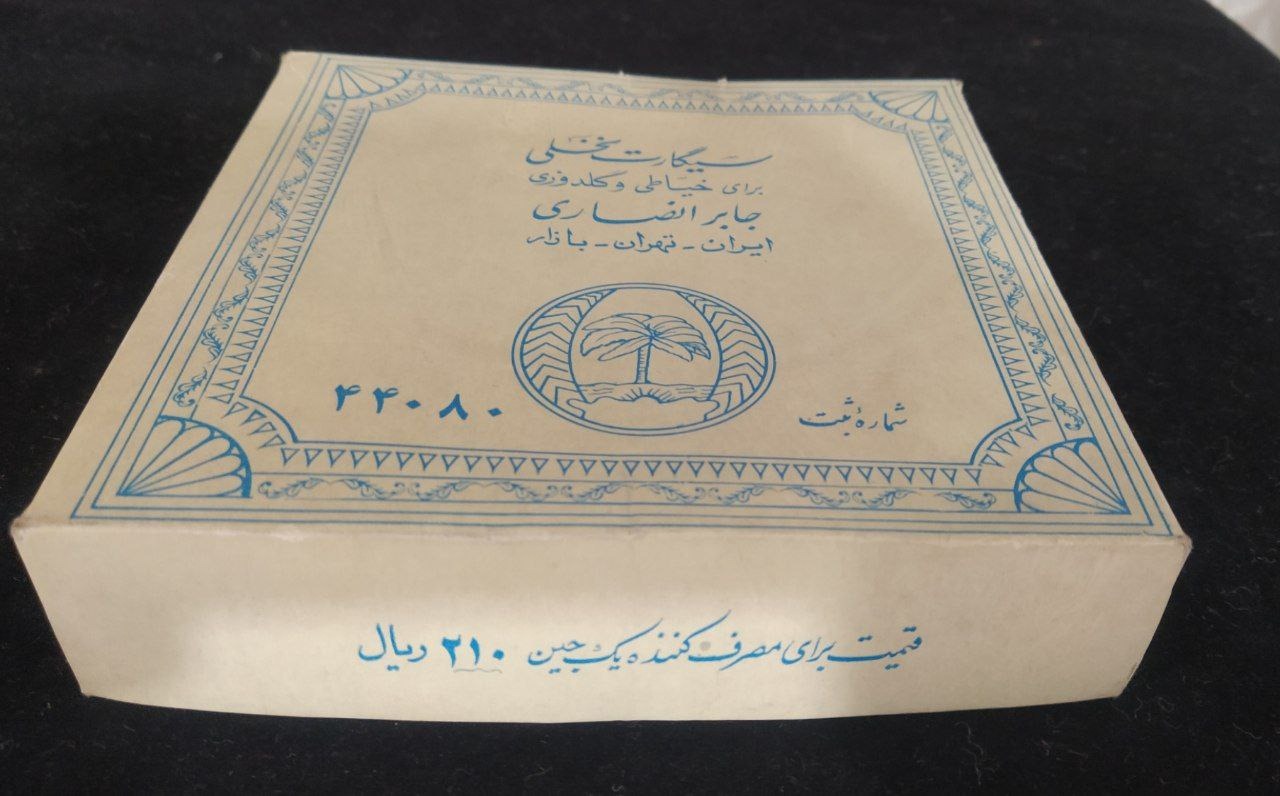 سیگارت نخلی
برای خیاطی و گلدوزی
جابر انصاری
ایران - تهران - بازار
شماره ثبت ۴۴۰۸۰
قیمت برای مصرف کننده یک جین ۲۱۰ ریال